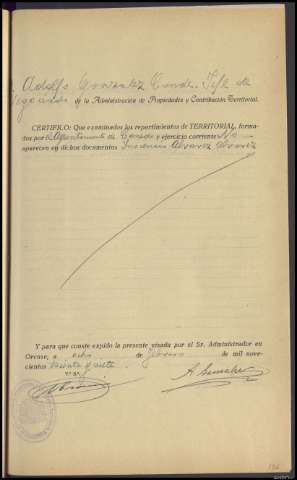 Adolfo Gonzalez Conde, Jefe de
Negociado de la Administración de Propiedades y Contribución Territorial.
CERTIFICO: Que examinados los repartimientos de TERRITORIAL, forma-
dos por el Ayuntamiento de y ejercicio corriente No
aparece en dichos documentos Alvarez Alvarez
Y para que conste expido la presente visada por el Sr. Administrador en
Orense, a ocho de de mil nove-
cientos treinta y siete
V.º B.º
A. Gonzalez